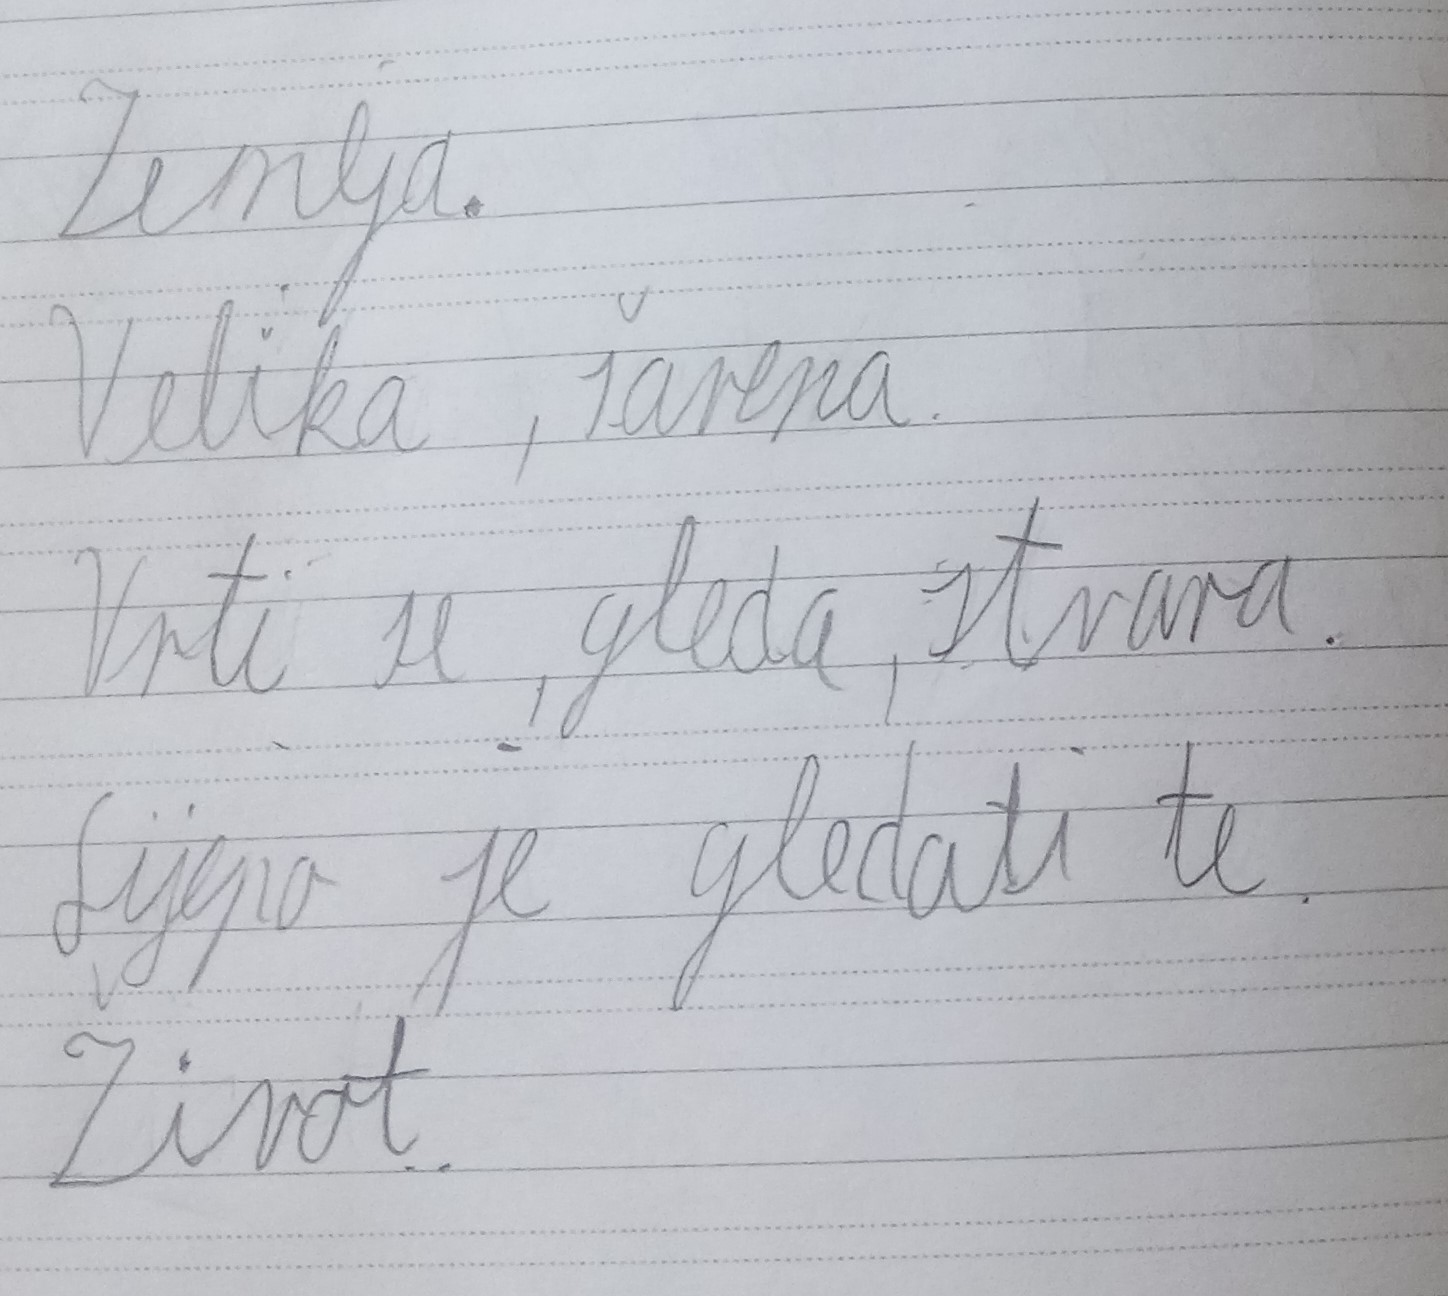 Zemlja.
Velika, šarena.
Vrti se, gleda, stvara.
Lijepo je gledati te.
Život.